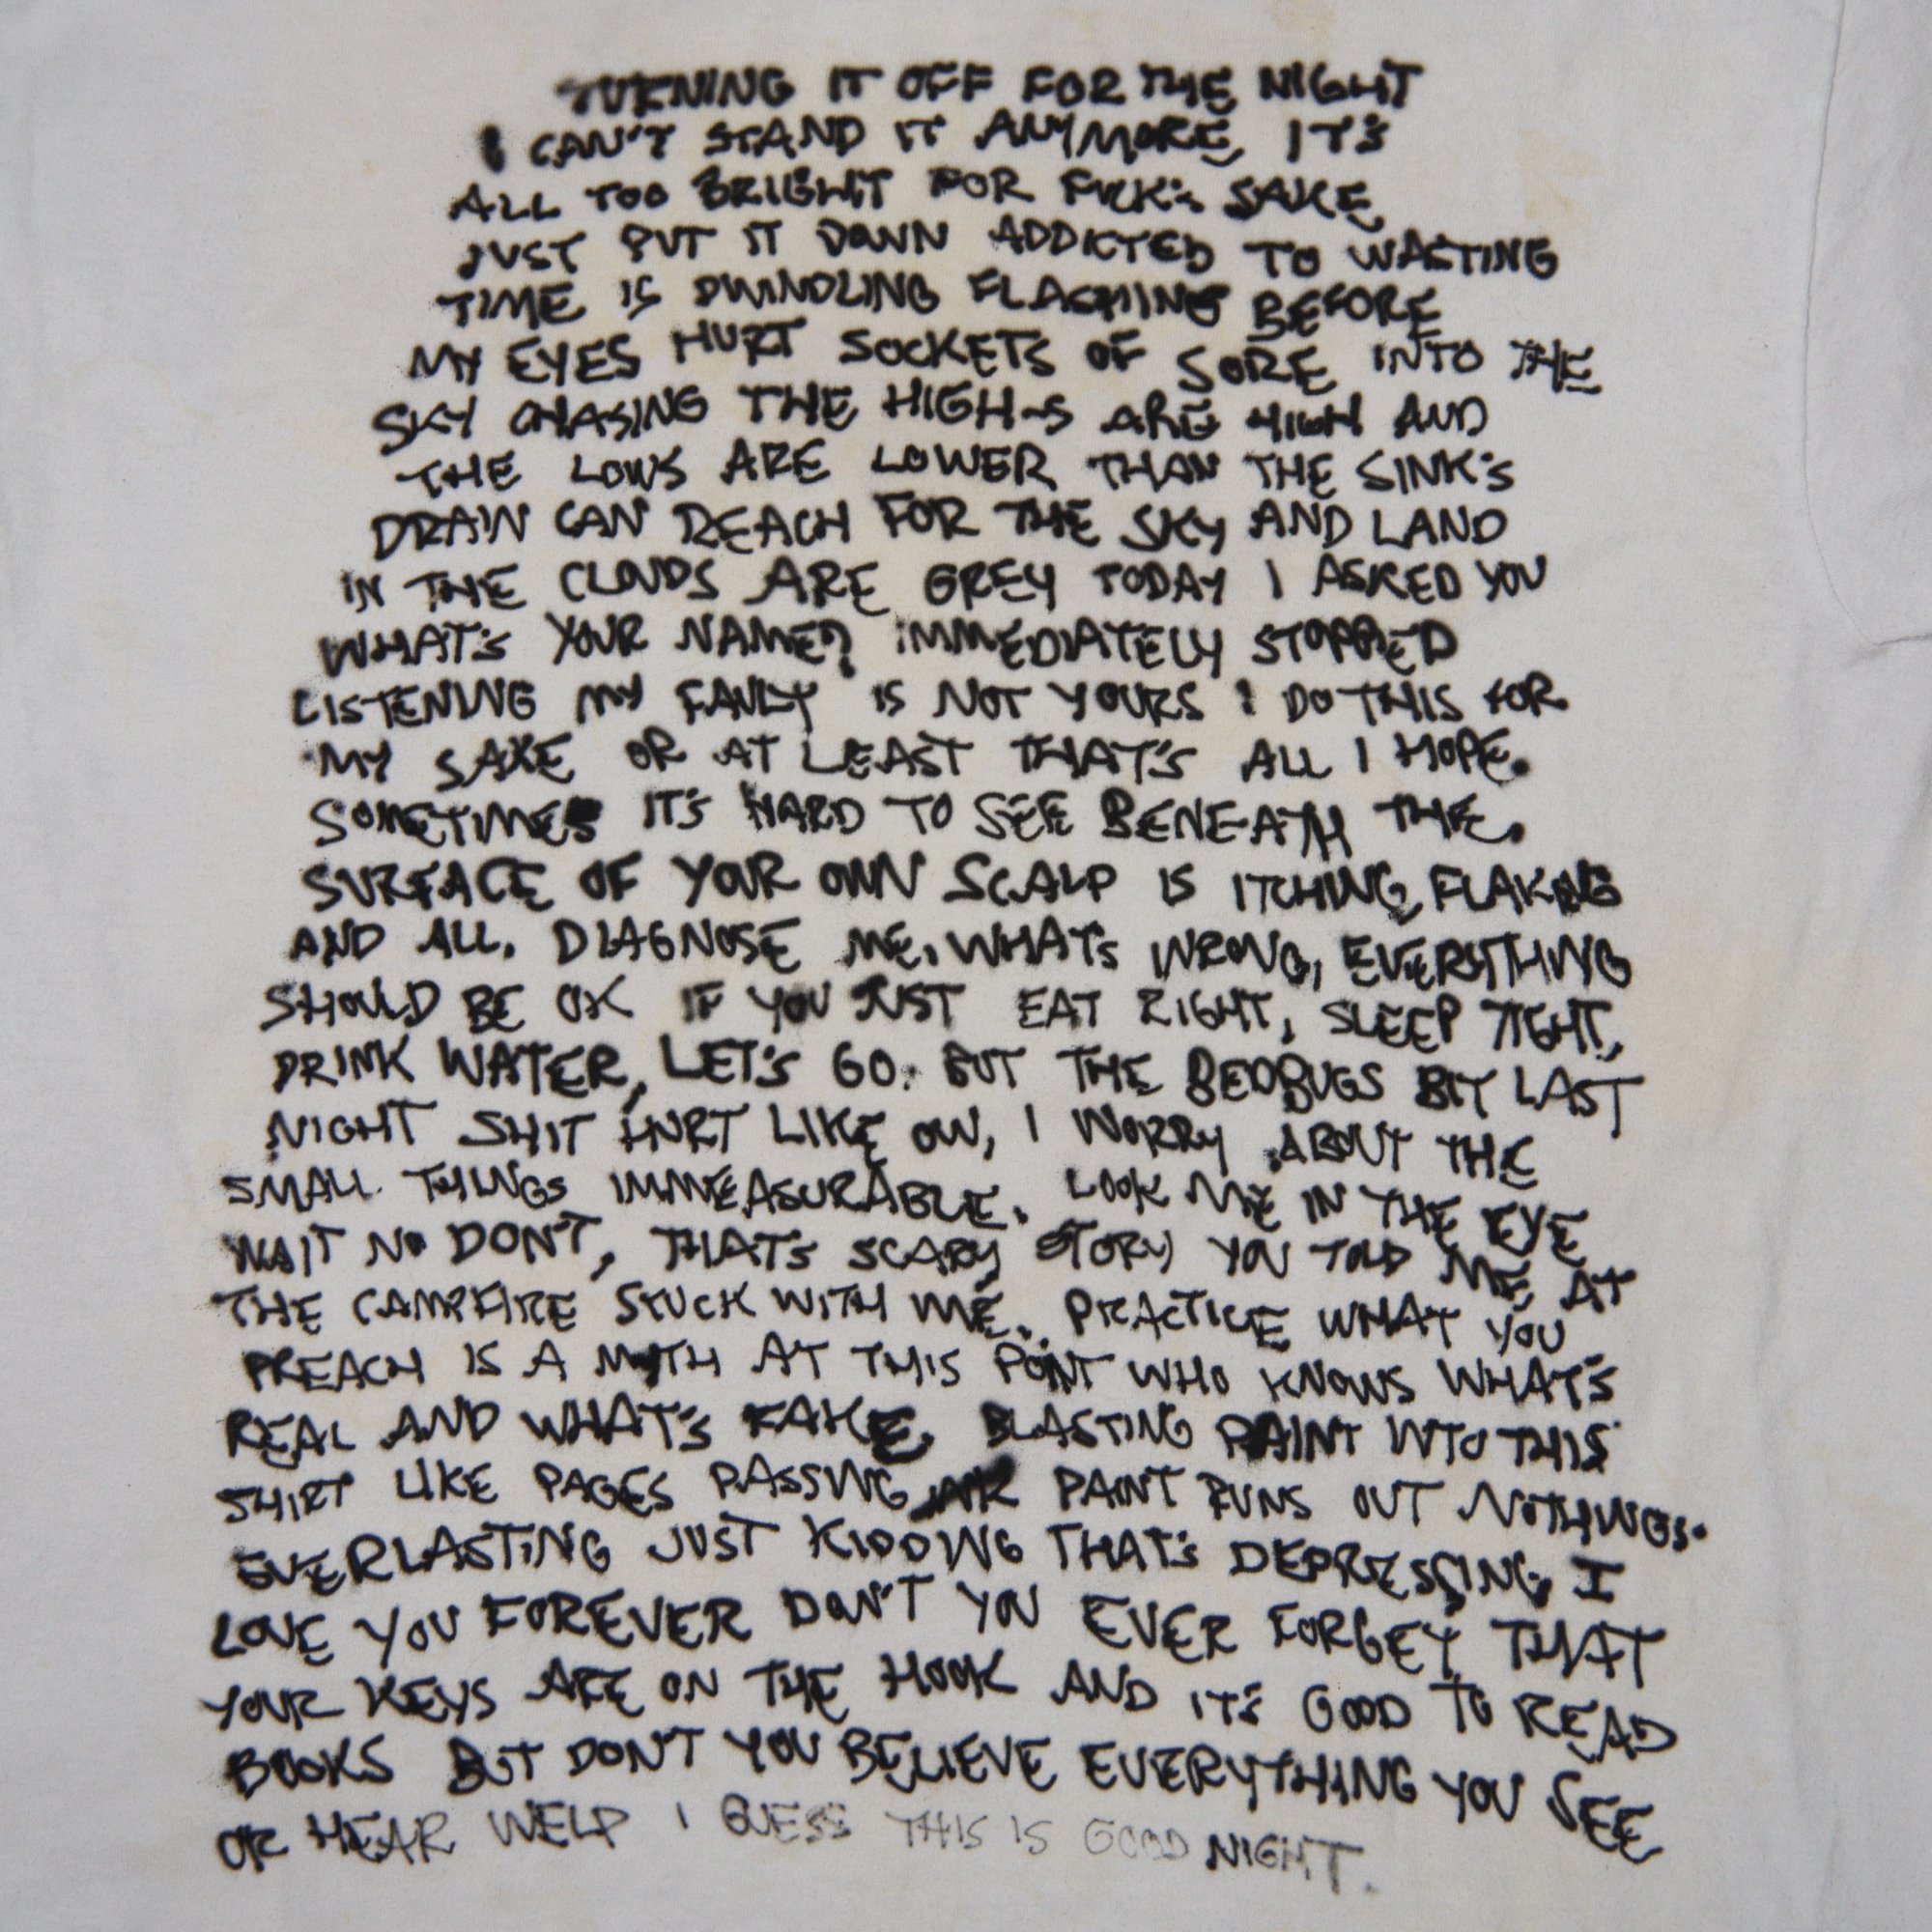 TURNING IT OFF FOR THE NIGHT
I CAN'T STAND IT ANYMORE, IT'S
ALL TOO BRIGHT FOR FUCK'S SAKE,
JUST PUT IT DOWN ADDICTED TO WASTING
TIME IS DWINDLING FLASHING BEFORE
MY EYES HURT SOCKETS OF SORE INTO THE
SKY CHASING THE HIGH-S ARE HIGH AND
THE LOWS ARE LOWER THAN THE SINK'S
DRAIN CAN REACH FOR THE SKY AND LAND
IN THE CLOUDS ARE GREY TODAY I ASKED YOU
WHAT'S YOUR NAME? IMMEDIATELY STOPPED
LISTENING MY FAULT IS NOT YOURS I DO THIS FOR
MY SAKE OR AT LEAST THAT'S ALL I HOPE.
SOMETIMES IT'S HARD TO SEE BENEATH THE.
SURFACE OF YOUR OWN SCALP IS ITCHING, FLAKING
AND ALL. DIAGNOSE ME, WHAT'S WRONG, EVERYTHING
SHOULD BE OK IF YOU JUST EAT RIGHT, SLEEP TIGHT,
DRINK WATER, LET'S GO. BUT THE BEDBUGS BIT LAST
NIGHT SHIT HURT LIKE OW, I WORRY ABOUT THE
SMALL THINGS IMMEASURABLE. LOOK ME IN THE EYE
WAIT NO DON'T, THAT'S SCARY STORY YOU TOLD ME AT
THE CAMPFIRE STUCK WITH ME. PRACTICE WHAT YOU
PREACH IS A MYTH AT THIS POINT WHO KNOWS WHAT'S
REAL AND WHAT'S FAKE. BLASTING PAINT INTO THIS
SHIRT LIKE PAGES PASSING INK PAINT RUNS OUT NOTHINGS.
EVERLASTING JUST KIDDING THAT'S DEPRESSING, I
LOVE YOU FOREVER DON'T YOU EVER FORGET THAT
YOUR KEYS ARE ON THE HOOK AND IT'S GOOD TO READ
BOOKS BUT DON'T YOU BELIEVE EVERYTHING YOU SEE
OR HEAR WELP I GUESS THIS IS GOOD NIGHT.